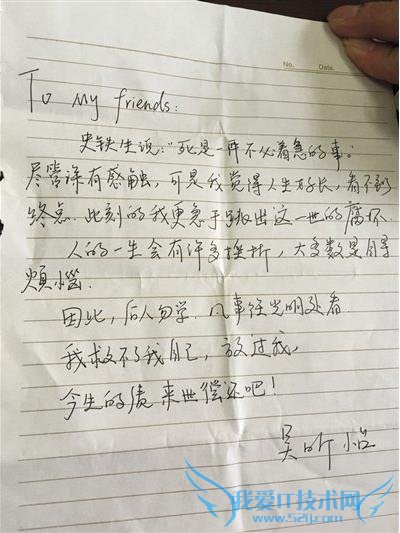 No.
Date.
To My friends:
史铁生说:"死是一件不必着急的事。
尽管深有感触,可是我觉得人生好长,看不到
终点.此刻的我更急于跳出这一世的腐坏.
人的一生会有许多挫折,大多数是自寻
煩惱.
因此,后人勿学.凡事往光明处看
我救不了我自己,放过我.
今生的债 来世偿还吧!
吴昕怡
我爱IT技术网
www.52ij.com